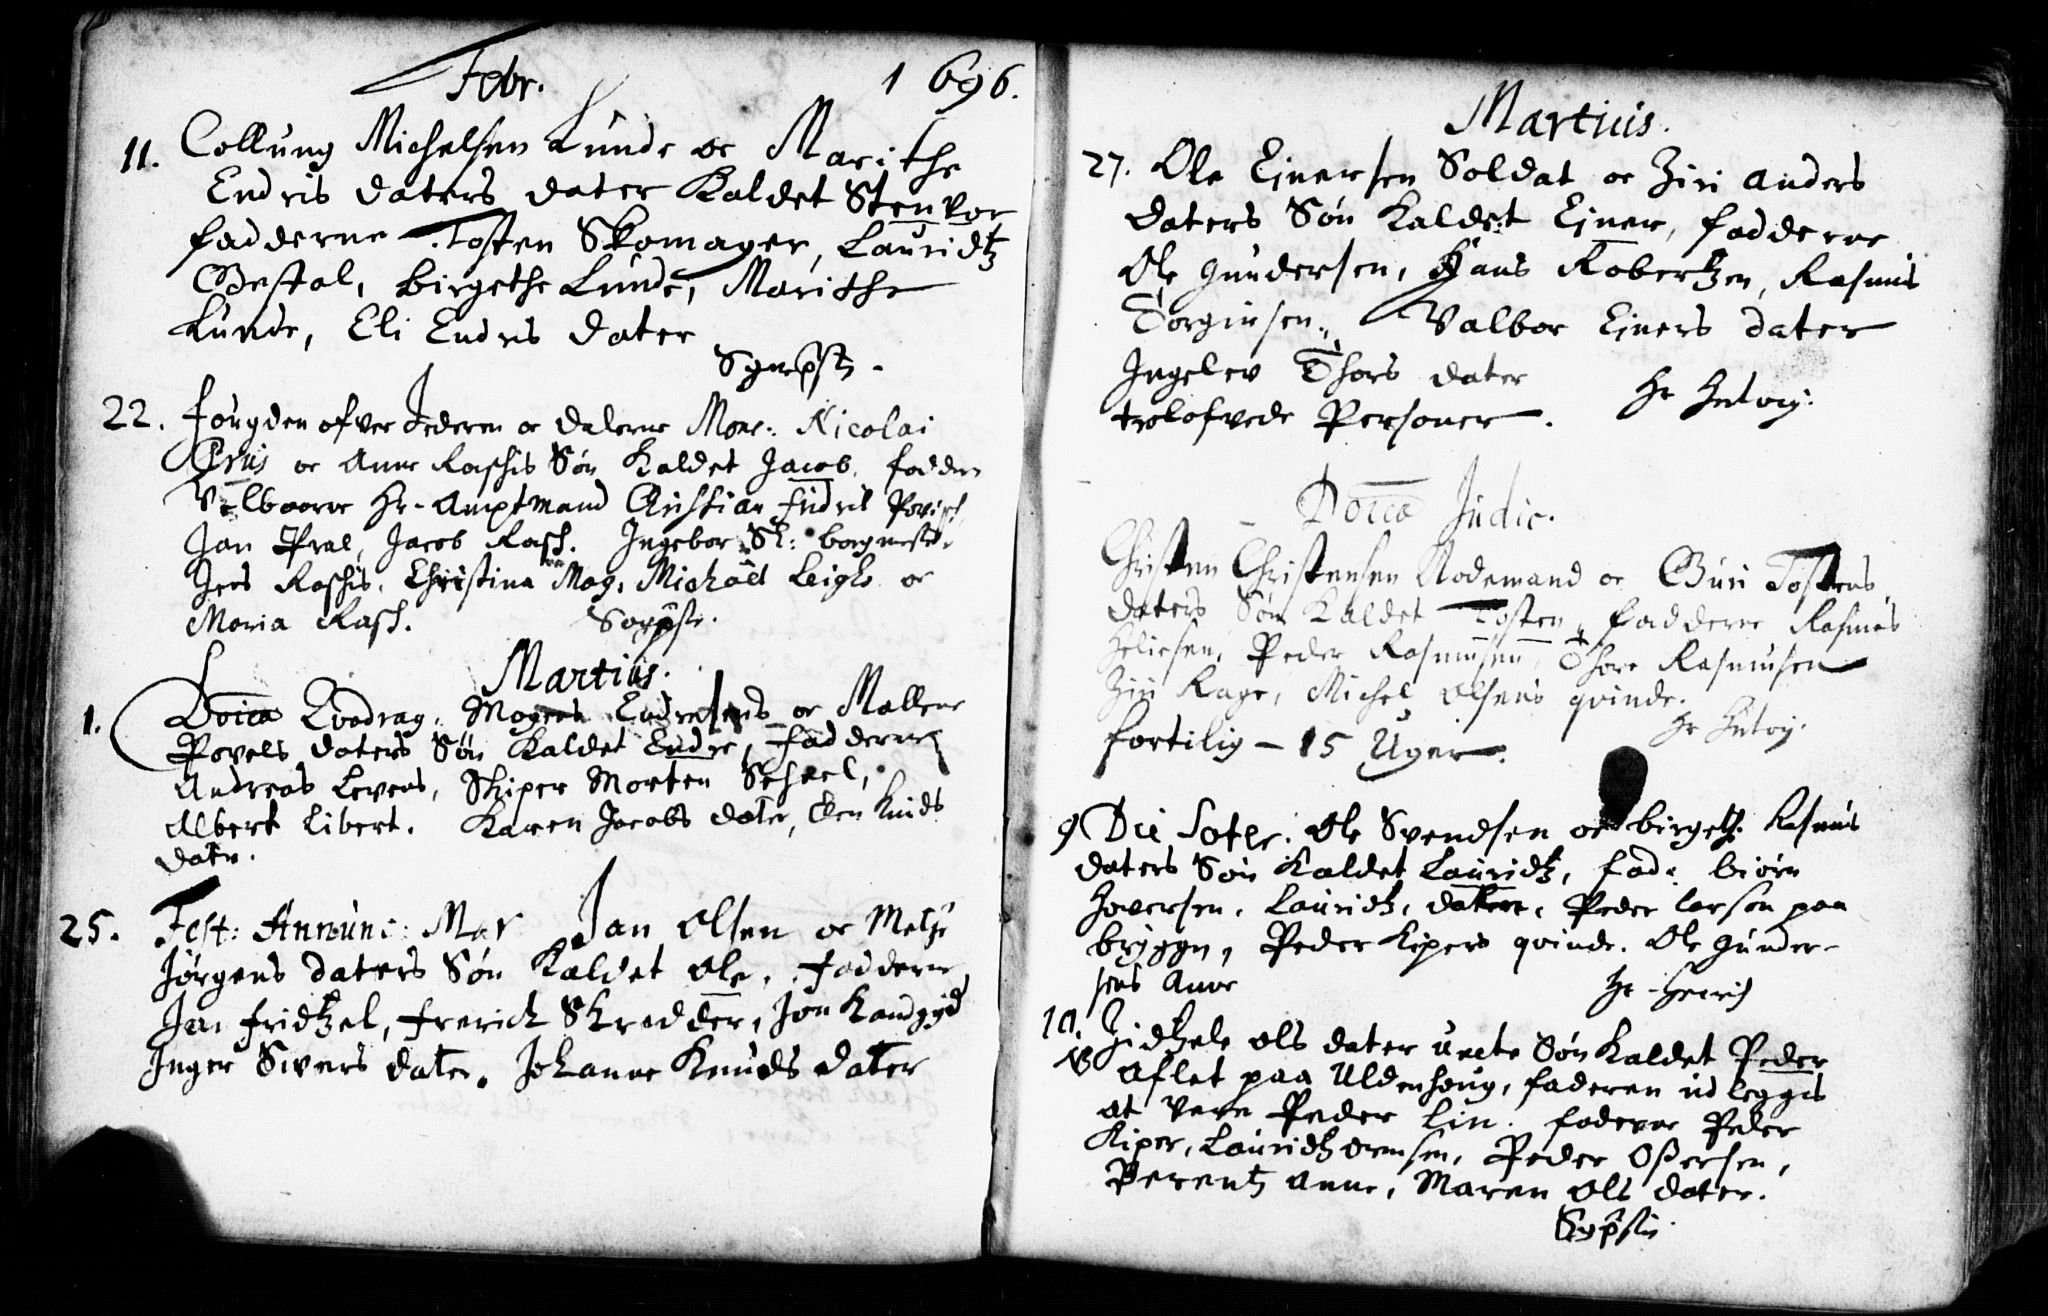 Febr. 1696.
11. Collung Michelsen Lunde oc Marithe
Endris daters dater Kaldet Stenvor
fadderne Tosten Skomager, Lauridtz
Gvestal, birgethe Lunde, Marithe
Lunde, Eli Endris dater
22. fougden ofver Jederen oc dalerne Monr: Nicolai
Prus oc Anne Raschis Søn Kaldet Jacob. fadder
Velbaarne Hr. Amptmand Christian fridril Povisch
Jan Pral, Jacob Rasch. Ingebor Sl: borgmester
Jens Raschis. Christina Mag. Michäel Leigh oc
Maria Rasch.
Martius.
1. Doica Qvadrag. Mogens Endresens oc Mallene
Povels daters Søn Kaldet Endre, fadderne
Andreas Levens, Skiper Morten Scheel,
Albert Libert. Karen Jacobs dater, Knids
dater.
25. Fest: Annunc: Mar Jan Olsen oc Metje
Jørgens daters Søn Kaldet Ole, fadderne
Jan fridtzel, frerich Skredder, Jon Kandgyd
Inger Sivers dater. Johanne Knuds dater
Martius.
27. Ole Ejnersen Soldat oc Ziri Anders
daters Søn Kaldet Ejner, fadderne
Ole Gundersen, Hans Robertzen, Rasmus
Torginsen, Valbor Ejners dater
Ingelev Thors dater
trolofvede Personer. Hr
Doica Judic.
Christen Christensen Rodemand oc Guri Tostens
daters Søn Kaldet Tosten, fadderne Rasmus
Heliesen, Peder Rasmusen, Thore Rasmusen
Ziri Rage, Michel Olsens qvinde.
fortilig - 15 Uger. Hr
9 Die Ole Svendsen oc birgethe Rasmus
daters Søn Kaldet Lauridtz, fad: biørn
Haversen, Lauridtz, Peder Larsen paa
bryggen, Peder Kipers qvinde. Ole Gunder-
sens Anne Hr. Henrich
10. Zidtzele Ols dater uecte Søn Kaldet Peder
NB Aflet paa Uldenhoug, faderen udleggis
at vere Peder Lin. faderne Peder
Kiper, Lauridtz Ormsen, Peder Ossersen,
Berentz Anne, Maren Ols dater.